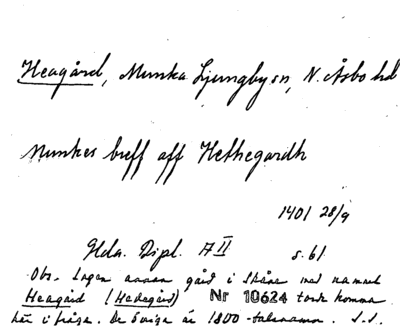 Heagård, Munka Ljungby sn, N. Åsbo hd
Munkes breff aff Hethegardh
1401 28/9
Gda. Dipl. A II s. 61
Obs. Ingen annan gård i Skåne med namnet
Heagård (Hedegård) Nr 10624 torde komma
här i fråga. De övriga är 1800-talsnamn. S.S.